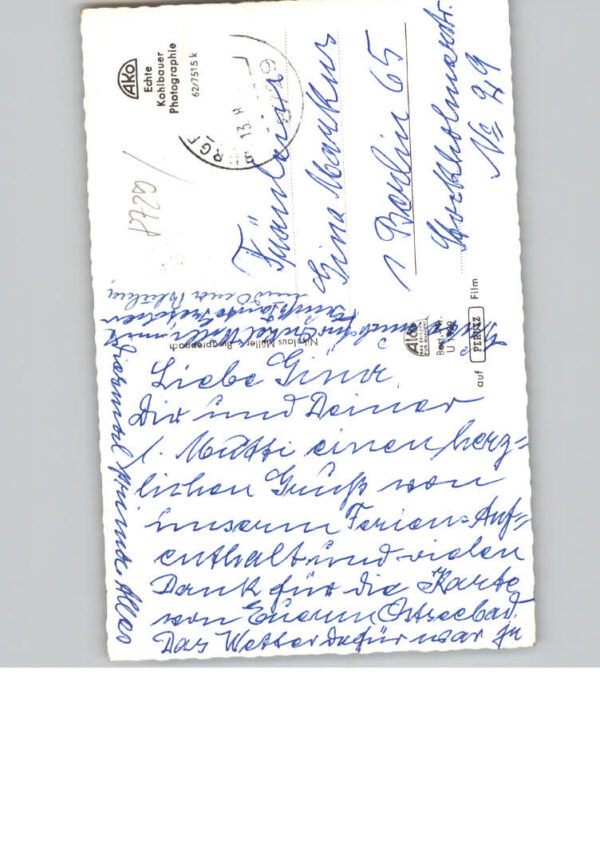 AKO
Echte
Kohlbauer
Photographie
62/7515 k
13. 8.
Fräulein
Gina Markus
1 Berlin 65
Stockholmerstr.
No 29
Liebe Gina,
Dir und Deiner
l. Mutti einen herz-
lichen Gruß von
unserm Ferien-Auf-
enthalt und vielen
Dank für die Karte
von Euerm Ostseebad.
Das Wetter dafür war ja
diesmal prima. Alles
Ako
auf PERUTZ Film
Nikolaus Müller